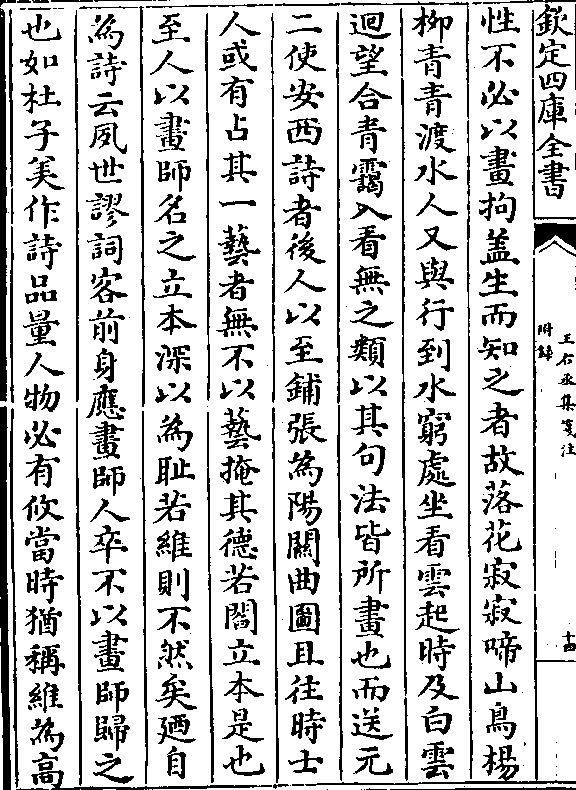 欽定四庫全書
王右丞集箋注
附錄
十四
性不必以畫拘盖生而知之者故落花寂寂啼山鳥楊
柳青青渡水人又與行到水窮處坐看雲起時及白雲
迴望合青靄入看無之類以其句法皆所畫也而送元
二使安西詩者後人以至鋪張為陽關曲圖且往時士
人或有占其一藝者無不以藝掩其德若閻立本是也
至人以畫師名之立本深以為恥若維則不然矣廼自
為詩云夙世謬詞客前身應畫師人卒不以畫師歸之
也如杜子美作詩品量人物必有攸當時猶稱維為高